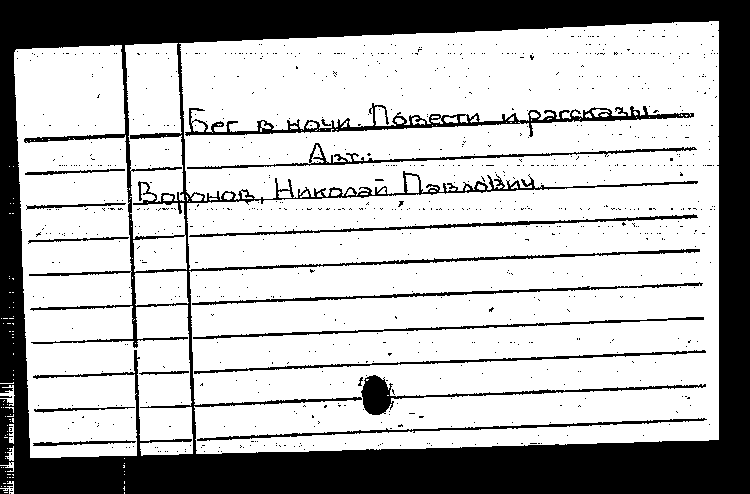 Бег в ночи. Повести и рассказы.
Авт.:
Воронов, Николай Павлович.